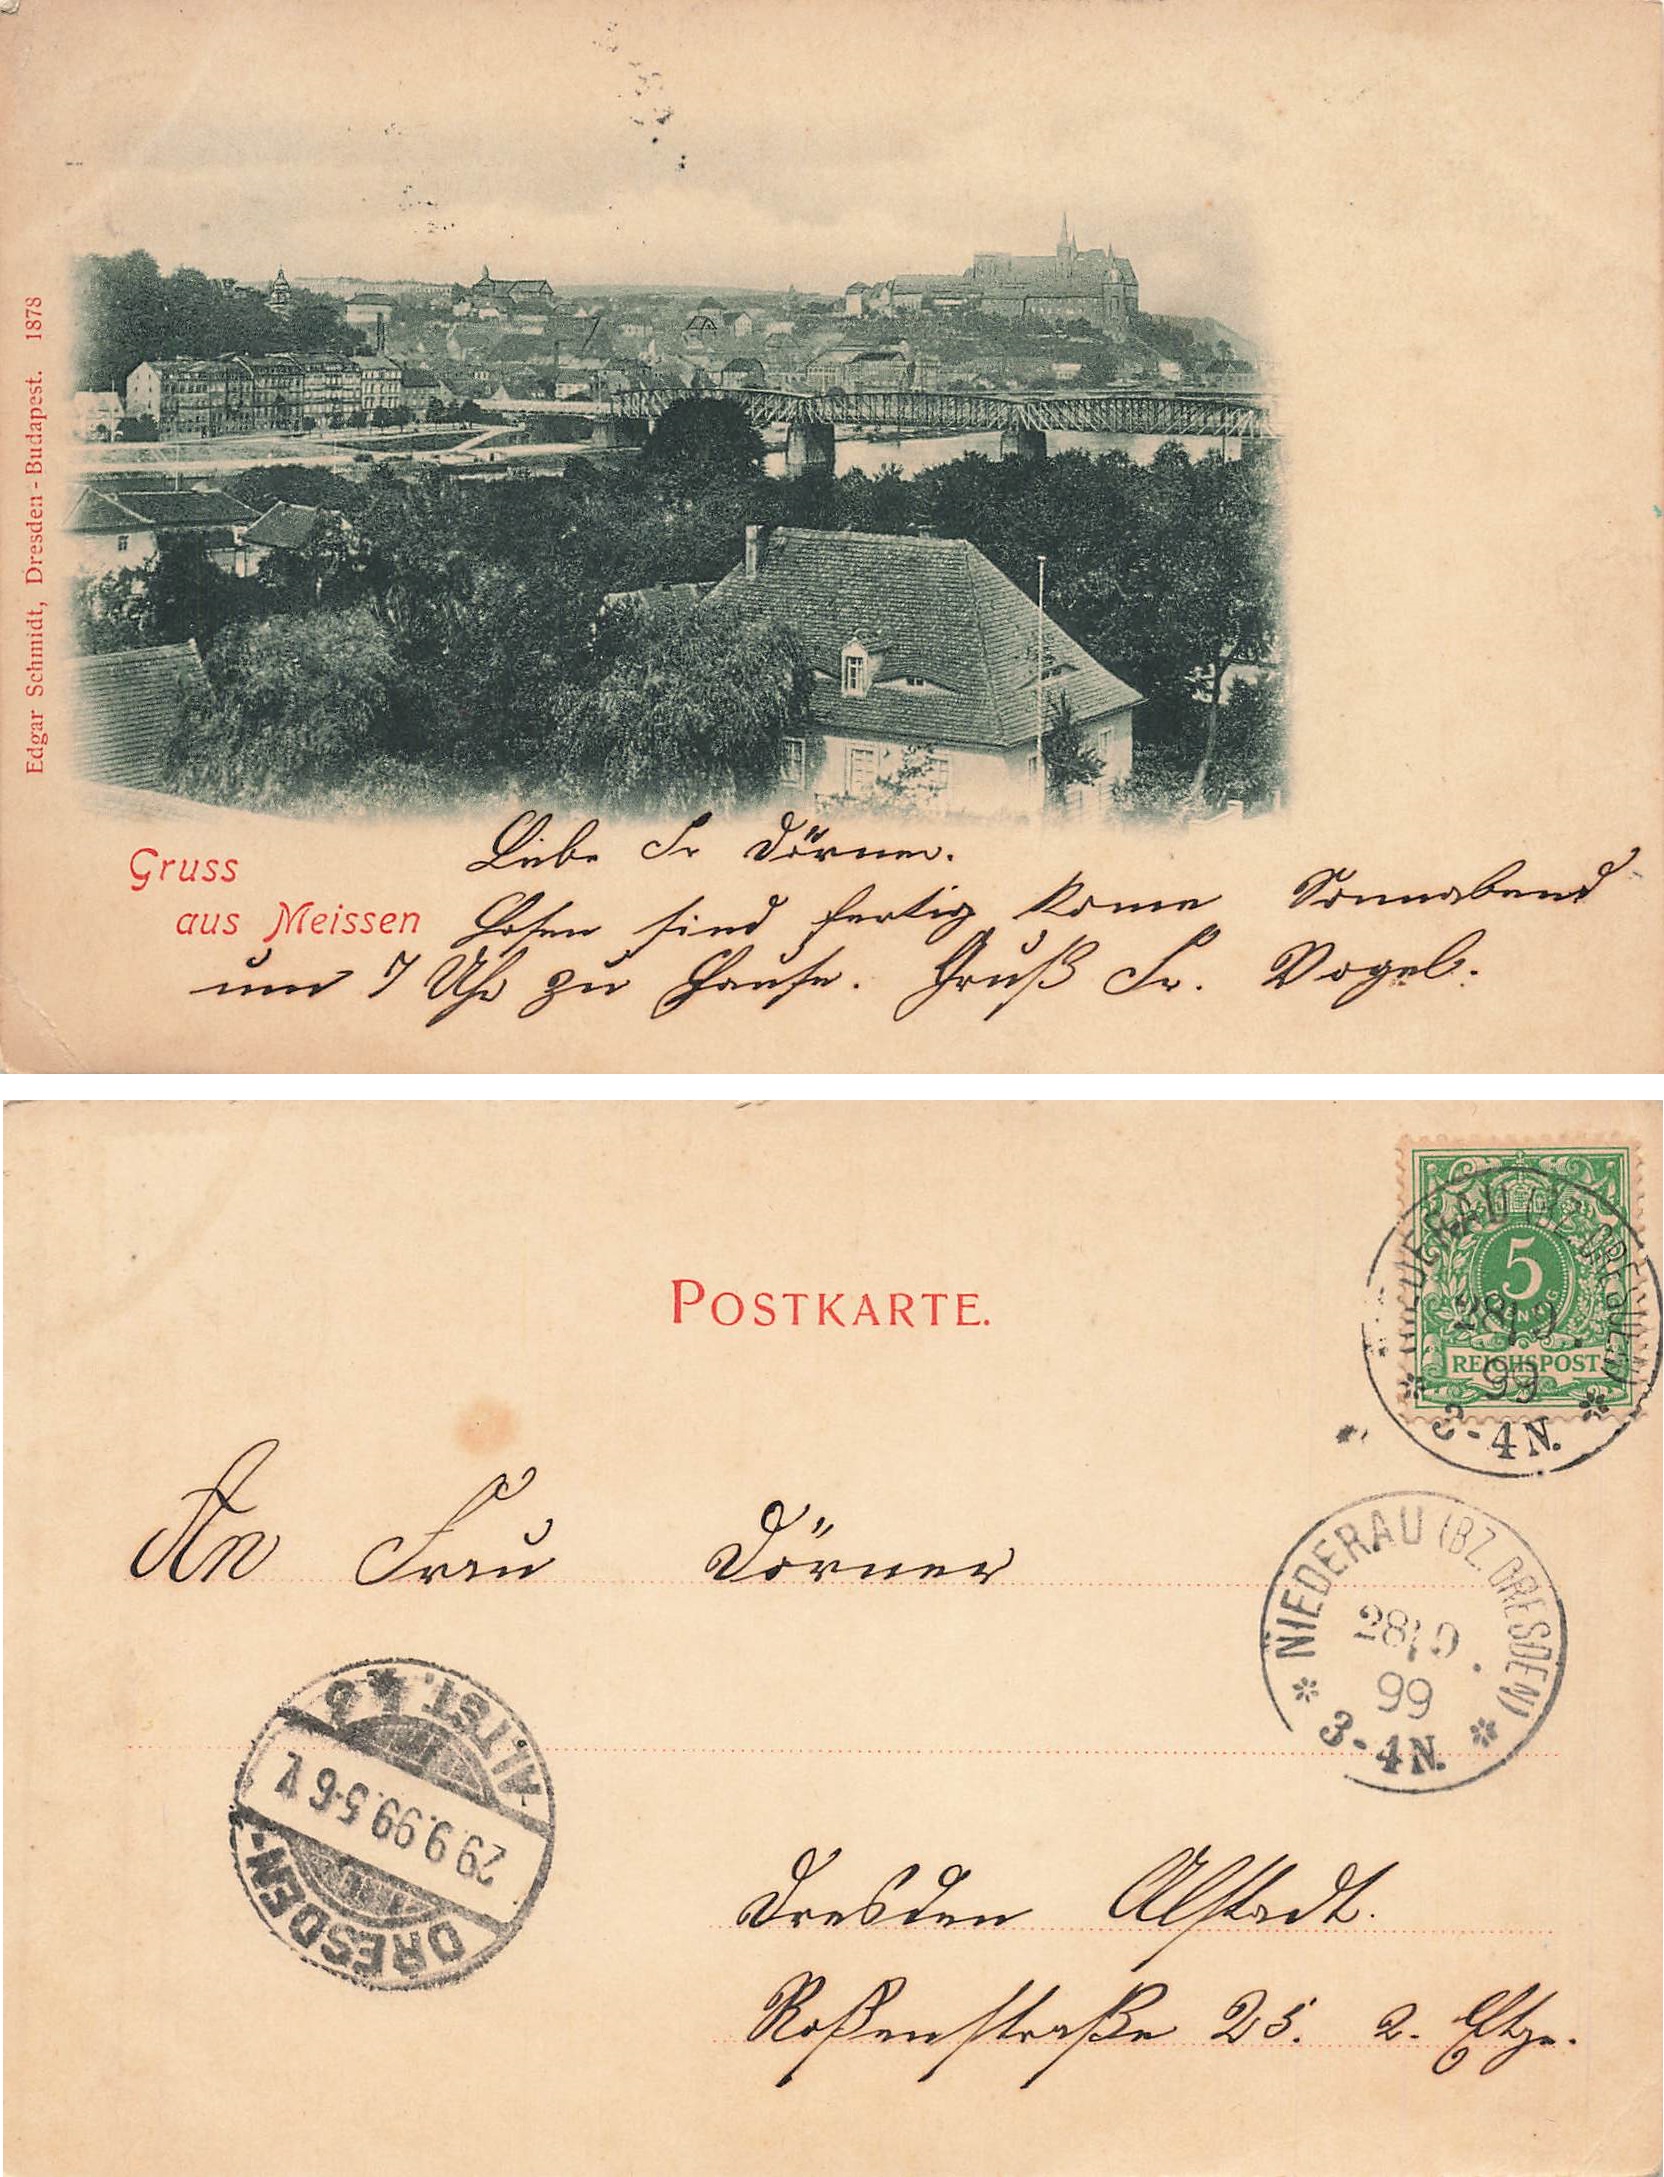 Edgar Schmidt, Dresden-Budapest. 1878
Gruss
aus Meissen
Liebe Fr Dörner.
Hosen sind fertig kome Sonnabend
um 7 Uhr zu Hause. Gruß Fr. Vogel.
NIEDERAU (BZ. DRESDEN)
28/9.
99
3-4N.
5
PFENNIG
REICHSPOST
POSTKARTE.
An Frau Dörner
NIEDERAU (BZ. DRESDEN)
28/9.
99
3-4N.
DRESDEN-
ALTST.
29.9.99.5-6V
Dresden Alstadt.
Roßenstraße 25. 2. Etge.